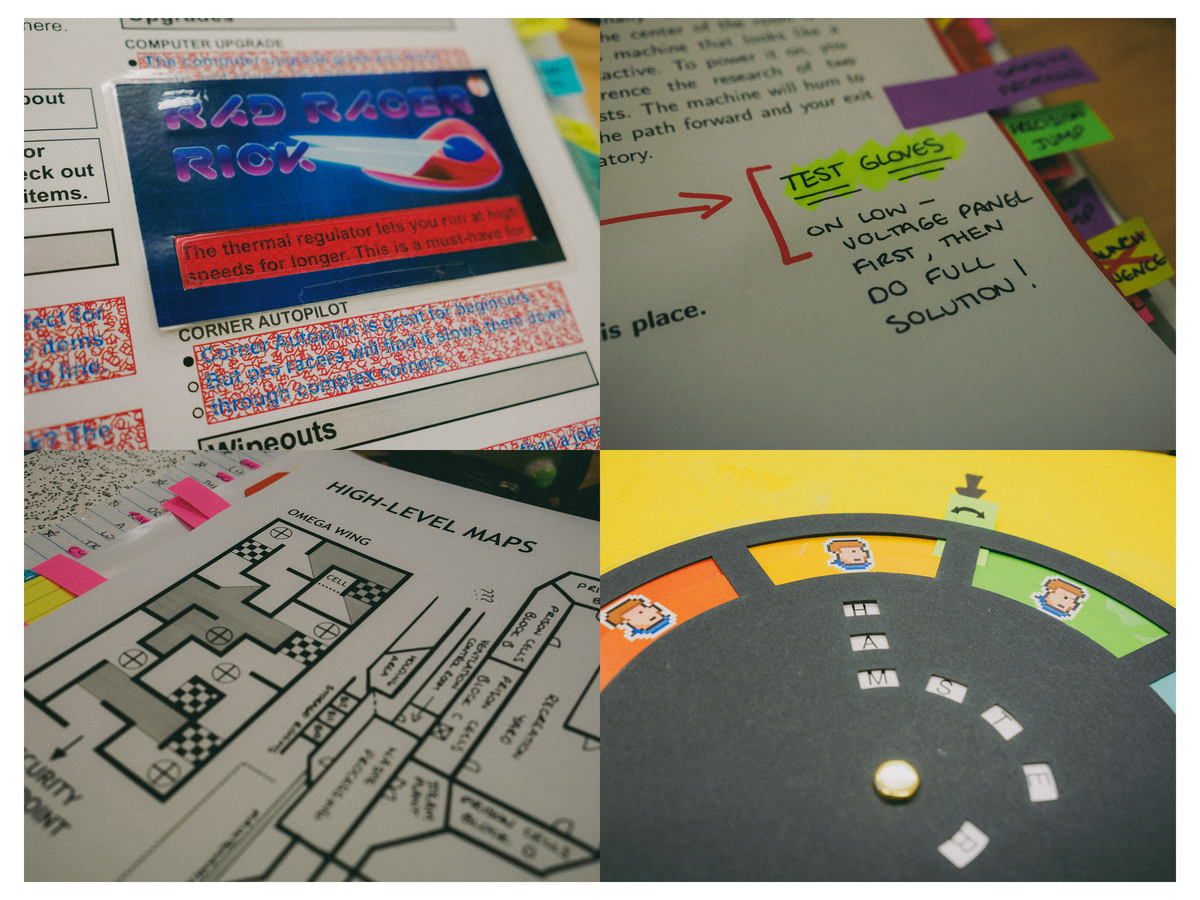 here.
Upgrades
COMPUTER UPGRADE
The computer upgrade
RAD RACER
RICK
The thermal regulator lets you run at high
speeds for longer. This is a must-have for
bout
or
eck out
items.
CORNER AUTOPILOT
Corner Autopilot is great for beginners.
But pro racers will find it slows them down
through complex corners.
ect for
y items
ng line.
k? The
Wipeouts
than a joke
the center of the room is
machine that looks like a
active. To power it on, you
rence the research of two
sts. The machine will hum to
he path forward and your exit
atory.
PRECISION
JUMP
TEST GLOVES
ON LOW –
VOLTAGE PANEL
FIRST, THEN
DO FULL
SOLUTION!
is place.
HIGH-LEVEL MAPS
OMEGA WING
CELL
CURITY
POINT
???
HOLDING
AREA
VENTILATION
CONTROL ROOM
PRISON CELLS
BLOCK B
PRISON CELLS
BLOCK C
RECREATION
YARD
STORAGE ROOMS
PROCESSING
STEAM
PLANT
PRISON CELLS
BLOCK D
H
A
M
S
T
E
R